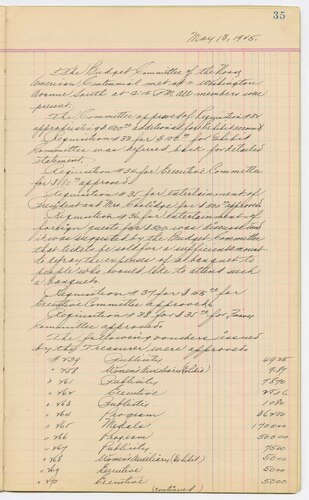 35
May 13, 1925.
The Budget Committee of the Norse
American Centennial met at Washington
Avenue South at 12:15 P.M. All members were
present.
The Committee approved Requisition # 32
appropriating $500.00 additional for
Requisition # 33 for Exhibit
Committee was referred back for detailed
statement.
Requisition # 34 for Executive Committee
for approved
Requisition # 35 for entertainment of
President and Mrs. Coolidge for approved
Requisition # 36 for entertainment of
foreign guests for was discussed and
it was suggested by the Budget Committee
that tickets be sold for a sufficient amount
to defray the expenses of a banquet to
people who would like to attend such
a banquet.
Requisition # 37 for for
Executive Committee approved.
Requisition # 38 for for
Committee approved.
The following vouchers issued
by the Treasurer were approved:
# 239 Publicity
" 258 Women's Auxiliary (Exhibit)
" 261 Publicity 78 70
" 262 Executive
" 263 Publicity 10 80
" 264 Program
" 265 Medals 1700 00
" 266 Program 500 00
" 267 Publicity 75 00
" 268 Women's Auxiliary (Exhibit) 50 00
" 269 Executive 50 00
" 270 Executive 50 00
(continued)